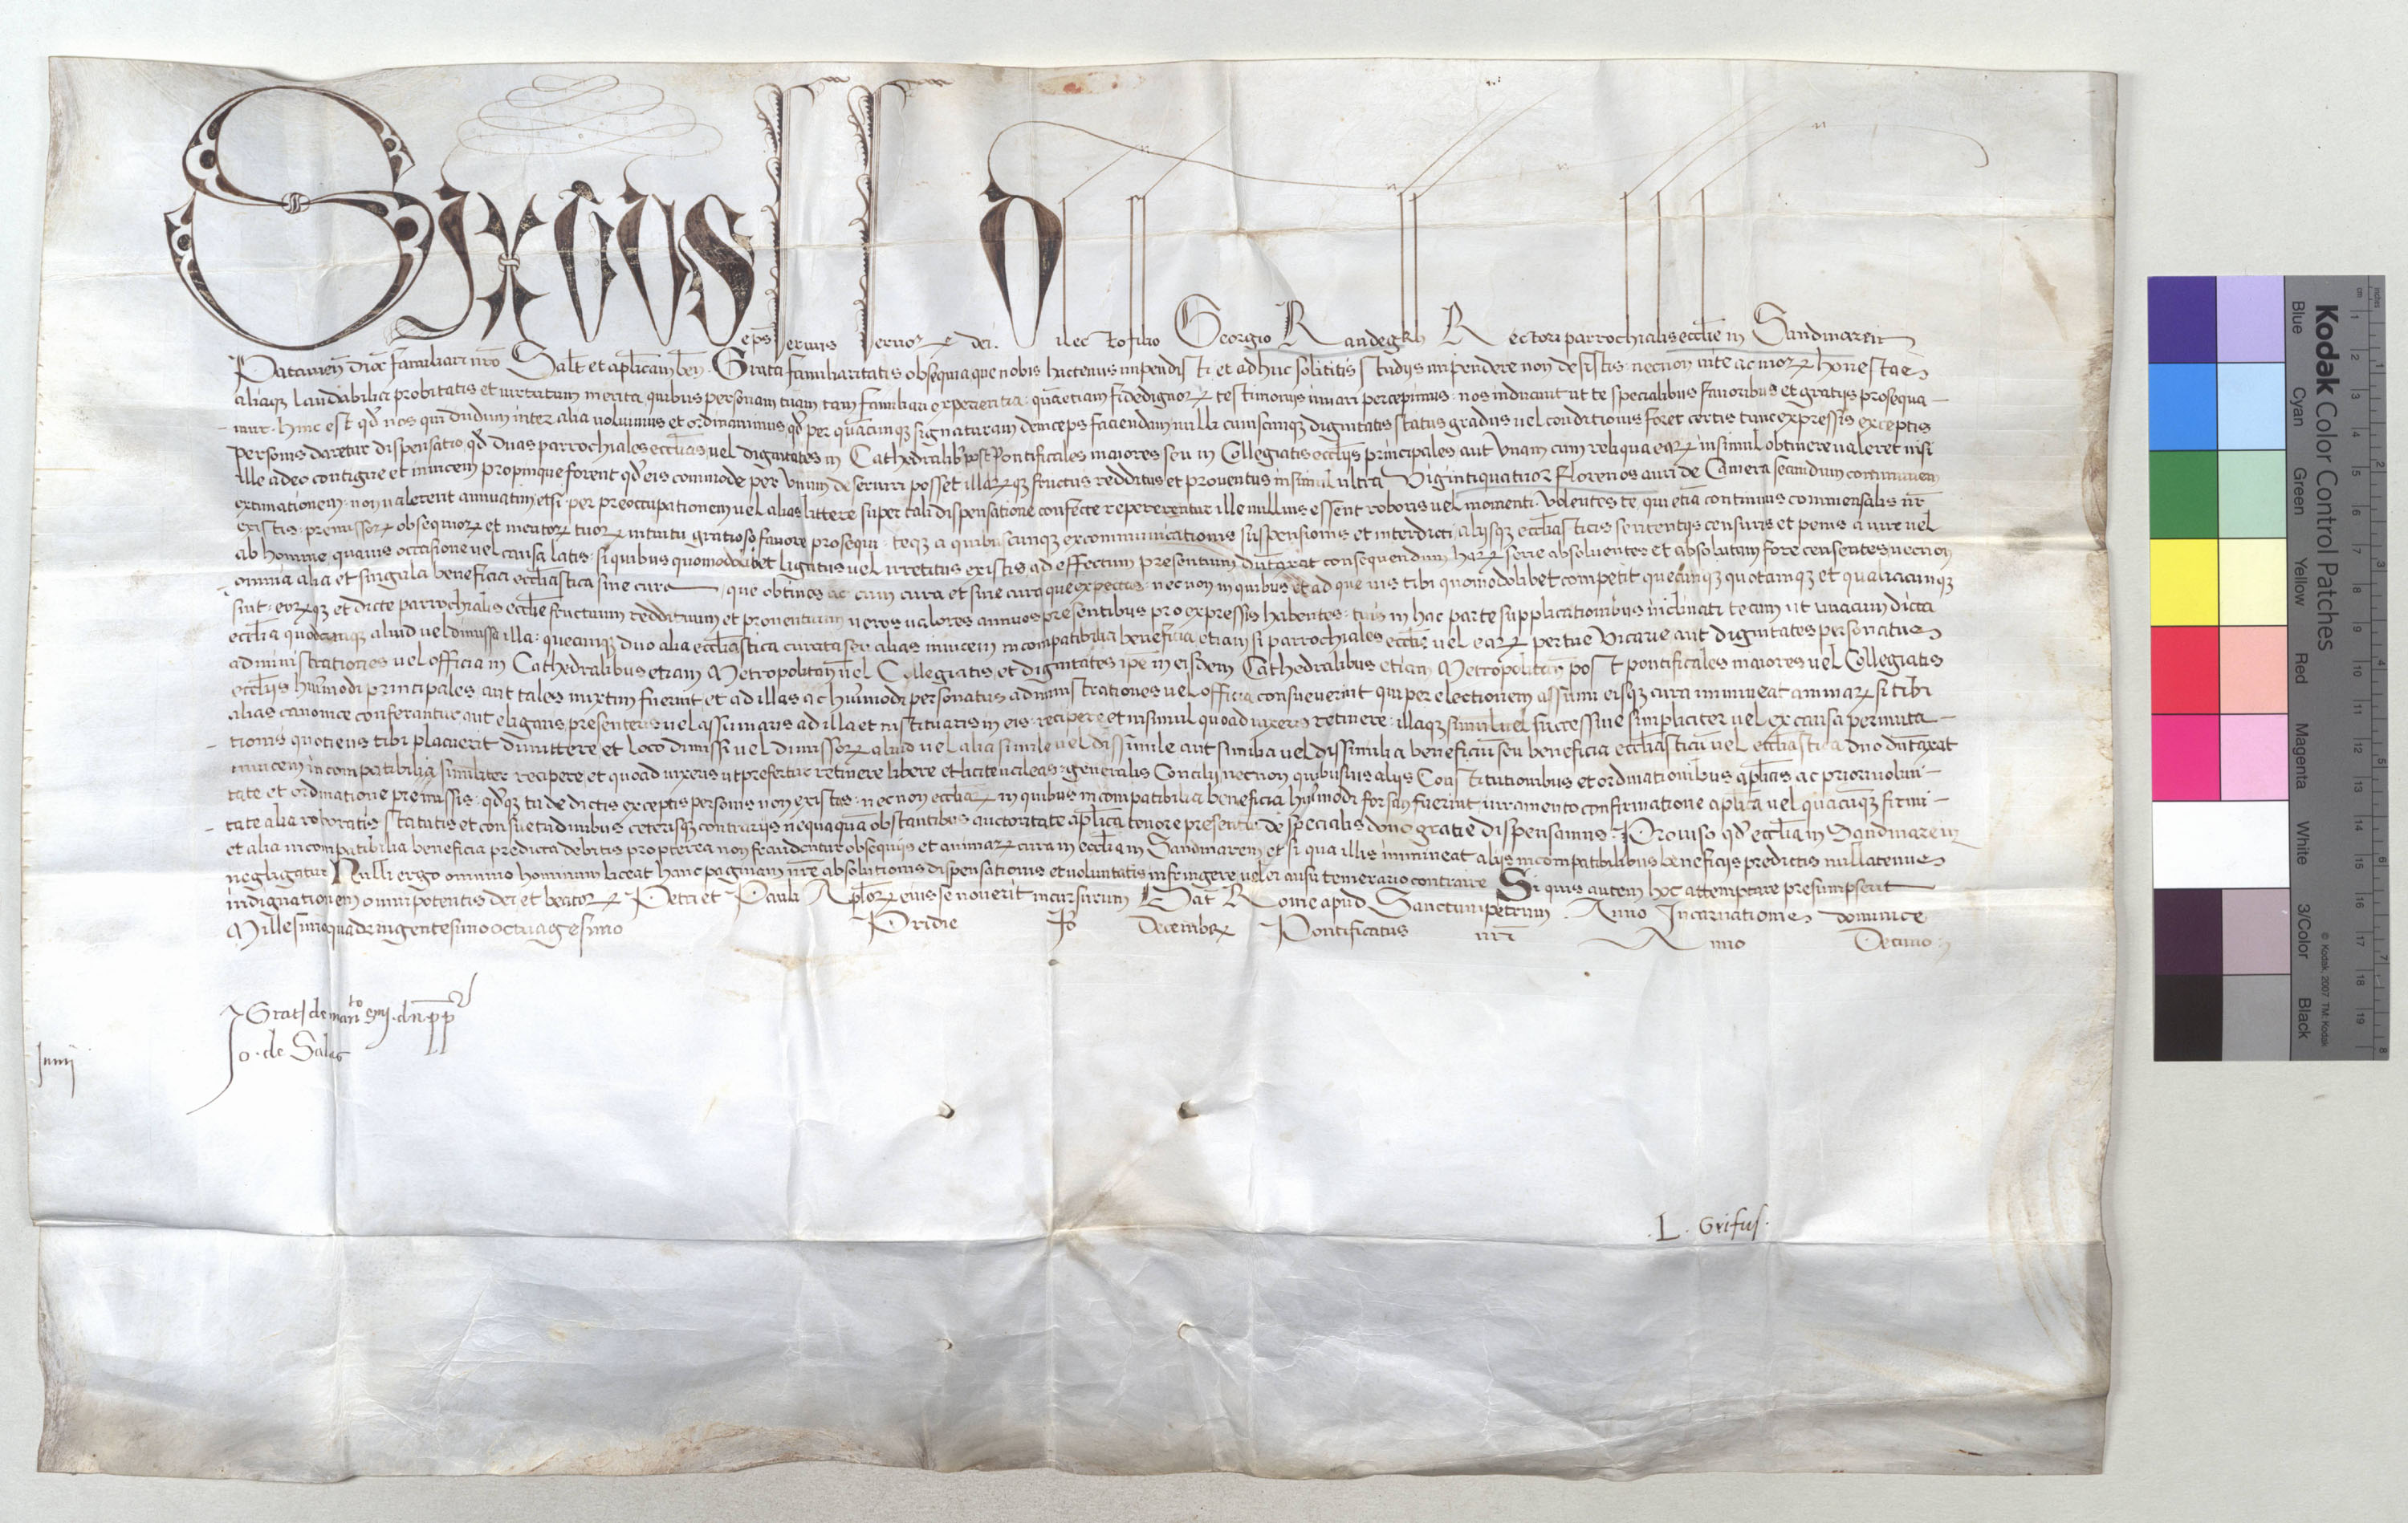 Sixtus eps servus servoꝝ dei. Dilecto filio Georgio Randegkh Rectori parrochialis ecclie in Sandmarein
Patavien̄ dioc̄ familiari nr̄o Salt̄ et aplicam ben̄. Grata familiaritatis obsequia que nobis hactenus impendisti et adhuc solititis studijs impendere non desistis necnon vite ac moꝝ honestas
aliaqꝫ laudabilia probitatis et virtutum merita quibus personam tuam tam familiari experientia quā etiam fidedignoꝝ testimonijs iuvari percepimus nos inducunt ut te specialibus favoribus et gratijs prosequa-
mur. Hinc est qđ nos qui dudum inter alia voluimus et ordinavimus qđ per quācunqꝫ signaturam deinceps faciendam nulli cuiuscunqꝫ dignitatis status gradus vel conditionis foret certis tunc expressis exceptis
personis daretur dispensatio qđ duas parrochiales ecclias vel dignitates in Cathedralibꝫ post Pontificales maiores seu in Collegiatis ecclijs principales aut Unam cum reliqua eaꝝ insimul obtinere valeret nisi
ille adeo contigue et invicem propinque forent qđ eis commode per Unum deserviri posset illaꝝqꝫ fructus redditus et proventus insimul ultra Vigintiquatuor Florenos auri de Camera secundum communem
extimationem non valerent annuatim etsi per preoccupationem vel alias littere super tali dispensatione confecte reperirentur ille nullius essent roboris vel momenti. Volentes te qui etiā continuus commensalis nr̄
existis premissoꝝ obsequioꝝ et meritoꝝ tuoꝝ intuitu gratioso favore prosequi teqꝫ a quibuscunqꝫ excommunicationis suspensionis et interdicti alijsqꝫ ecclasticis sententijs censuris et penis a iure vel
ab homine quavis occasione vel causa latis si quibus quomodolibet ligatus vel irretitus existis ad effectum presentium dūtaxat consequendum haꝝ serie absolventes et absolutum fore censentes necnon
omnia alia et singula beneficia ecclastica sine cura que obtines ac cum cura et sine cura que expectas necnon in quibus et ad que ius tibi quomodolibet competit quecunqꝫ quotcunqꝫ et qualiacunqꝫ
sint eoꝝqꝫ et dicte parrochialis ecclie fructuum reddituum et proventuum veros valores annuos presentibus pro expressis habentes tuis in hac parte supplicationibus inclinati tecum ut unacum dicta
ecclia quodcunqꝫ aliud vel dimissa illa quecunqꝫ duo alia ecclastica curata seu alias invicem incompatibilia beneficia etiam si parrochiales ecclie vel eaꝝ perpetue Vicarie aut dignitates personatus
administrationes vel officia in Cathedralibus etiam Metropolitan̄ vel Collegiatis et dignitates ipe in eisdem Cathedralibus etiam Metropolitan̄ post pontificales maiores vel Collegiatis
ecclijs hm̄oi principales aut tales mixtim fuerint et ad illas ac hm̄oi personatus administrationes vel officia consueverint qui per electionem assumi eisqꝫ cura immineat animaꝝ si tibi
alias canonice conferantur aut eligaris presenteris vel assumaris ad illa et instituaris in eis recipere et insimul quoad vixeris retinere illaqꝫ simul vel successive simpliciter vel ex causa permuta-
tionis quotiens tibi placuerit dimittere et loco dimissi vel dimissoꝝ aliud vel alia simile vel dissimile aut similia vel dissimilia beneficiū seu beneficia ecclasticū vel ecclastica duo dūtaxat
invicem incompatibilia similiter recipere et quoad vixeris ut prefertur retinere libere et licite valeas generalis Concilij necnon quibusvis alijs Constitutionibus et ordinationibus aplicis ac priori volun-
tate et ordinatione premissis qđqꝫ tu de dictis exceptis personis non existas necnon eccliaꝝ in quibus incompatibilia beneficia hm̄oi forsan fuerint iuramento confirmatione aplica vel quacunqꝫ firmi-
tate alia roboratis statutis et consuetudinibus ceterisqꝫ contrarijs nequaquā obstantibus auctoritate aplica tenore presentiū de specialis dono gratie dispensamus. Proviso qđ ecclia in Sandmarein
et alia incompatibilia beneficia predicta debitis propterea non fraudentur obsequijs et animaꝝ cura in ecclia in Sandmarein et si qua illis immineat alijs incompatibilibus beneficijs predictis nullatenus
negligatur Nulli ergo omnino hominum liceat hanc paginam nr̄e absolutionis dispensationis et voluntatis infringere vel ei ausu temerario contraire Si quis autem hoc attemptare presumpserit
indignationem omnipotentis dei et beatoꝝ Petri et Pauli Aploꝝ eius se noverit incursurum Dat̄ Rome apud Sanctumpetrum. Anno Incarnationis dominice
Millesimoquadringentesimooctuagesimo Pridie Id Decembꝝ Pontificatus nr̄i Anno Decimo
Grat̄ de man̄to smi.d.n.pp
Jo. de Salas
L. Grifus.
Kodak Color Control Patches
Blue Cyan Green Yellow Red Magenta White 3/Color Black
© Kodak, 2007 TM: Kodak
inches 1 2 3 4 5 6 7 8
cm 1 2 3 4 5 6 7 8 9 10 11 12 13 14 15 16 17 18 19